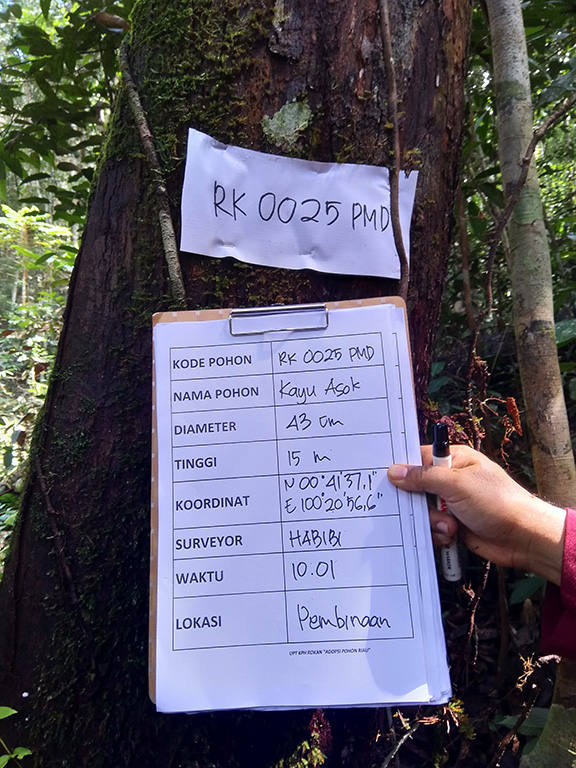 RK 0025 PMD
KODE POHON RK 0025 PMD
NAMA POHON Kayu Asok
DIAMETER 43 cm
TINGGI 15 m
KOORDINAT N 00°41'37,1"
E 100°20'56,6"
SURVEYOR HABIBI
WAKTU 10.01
LOKASI Pembinaan
UPT KPH ROKAN "ADOPSI POHON RIAU"